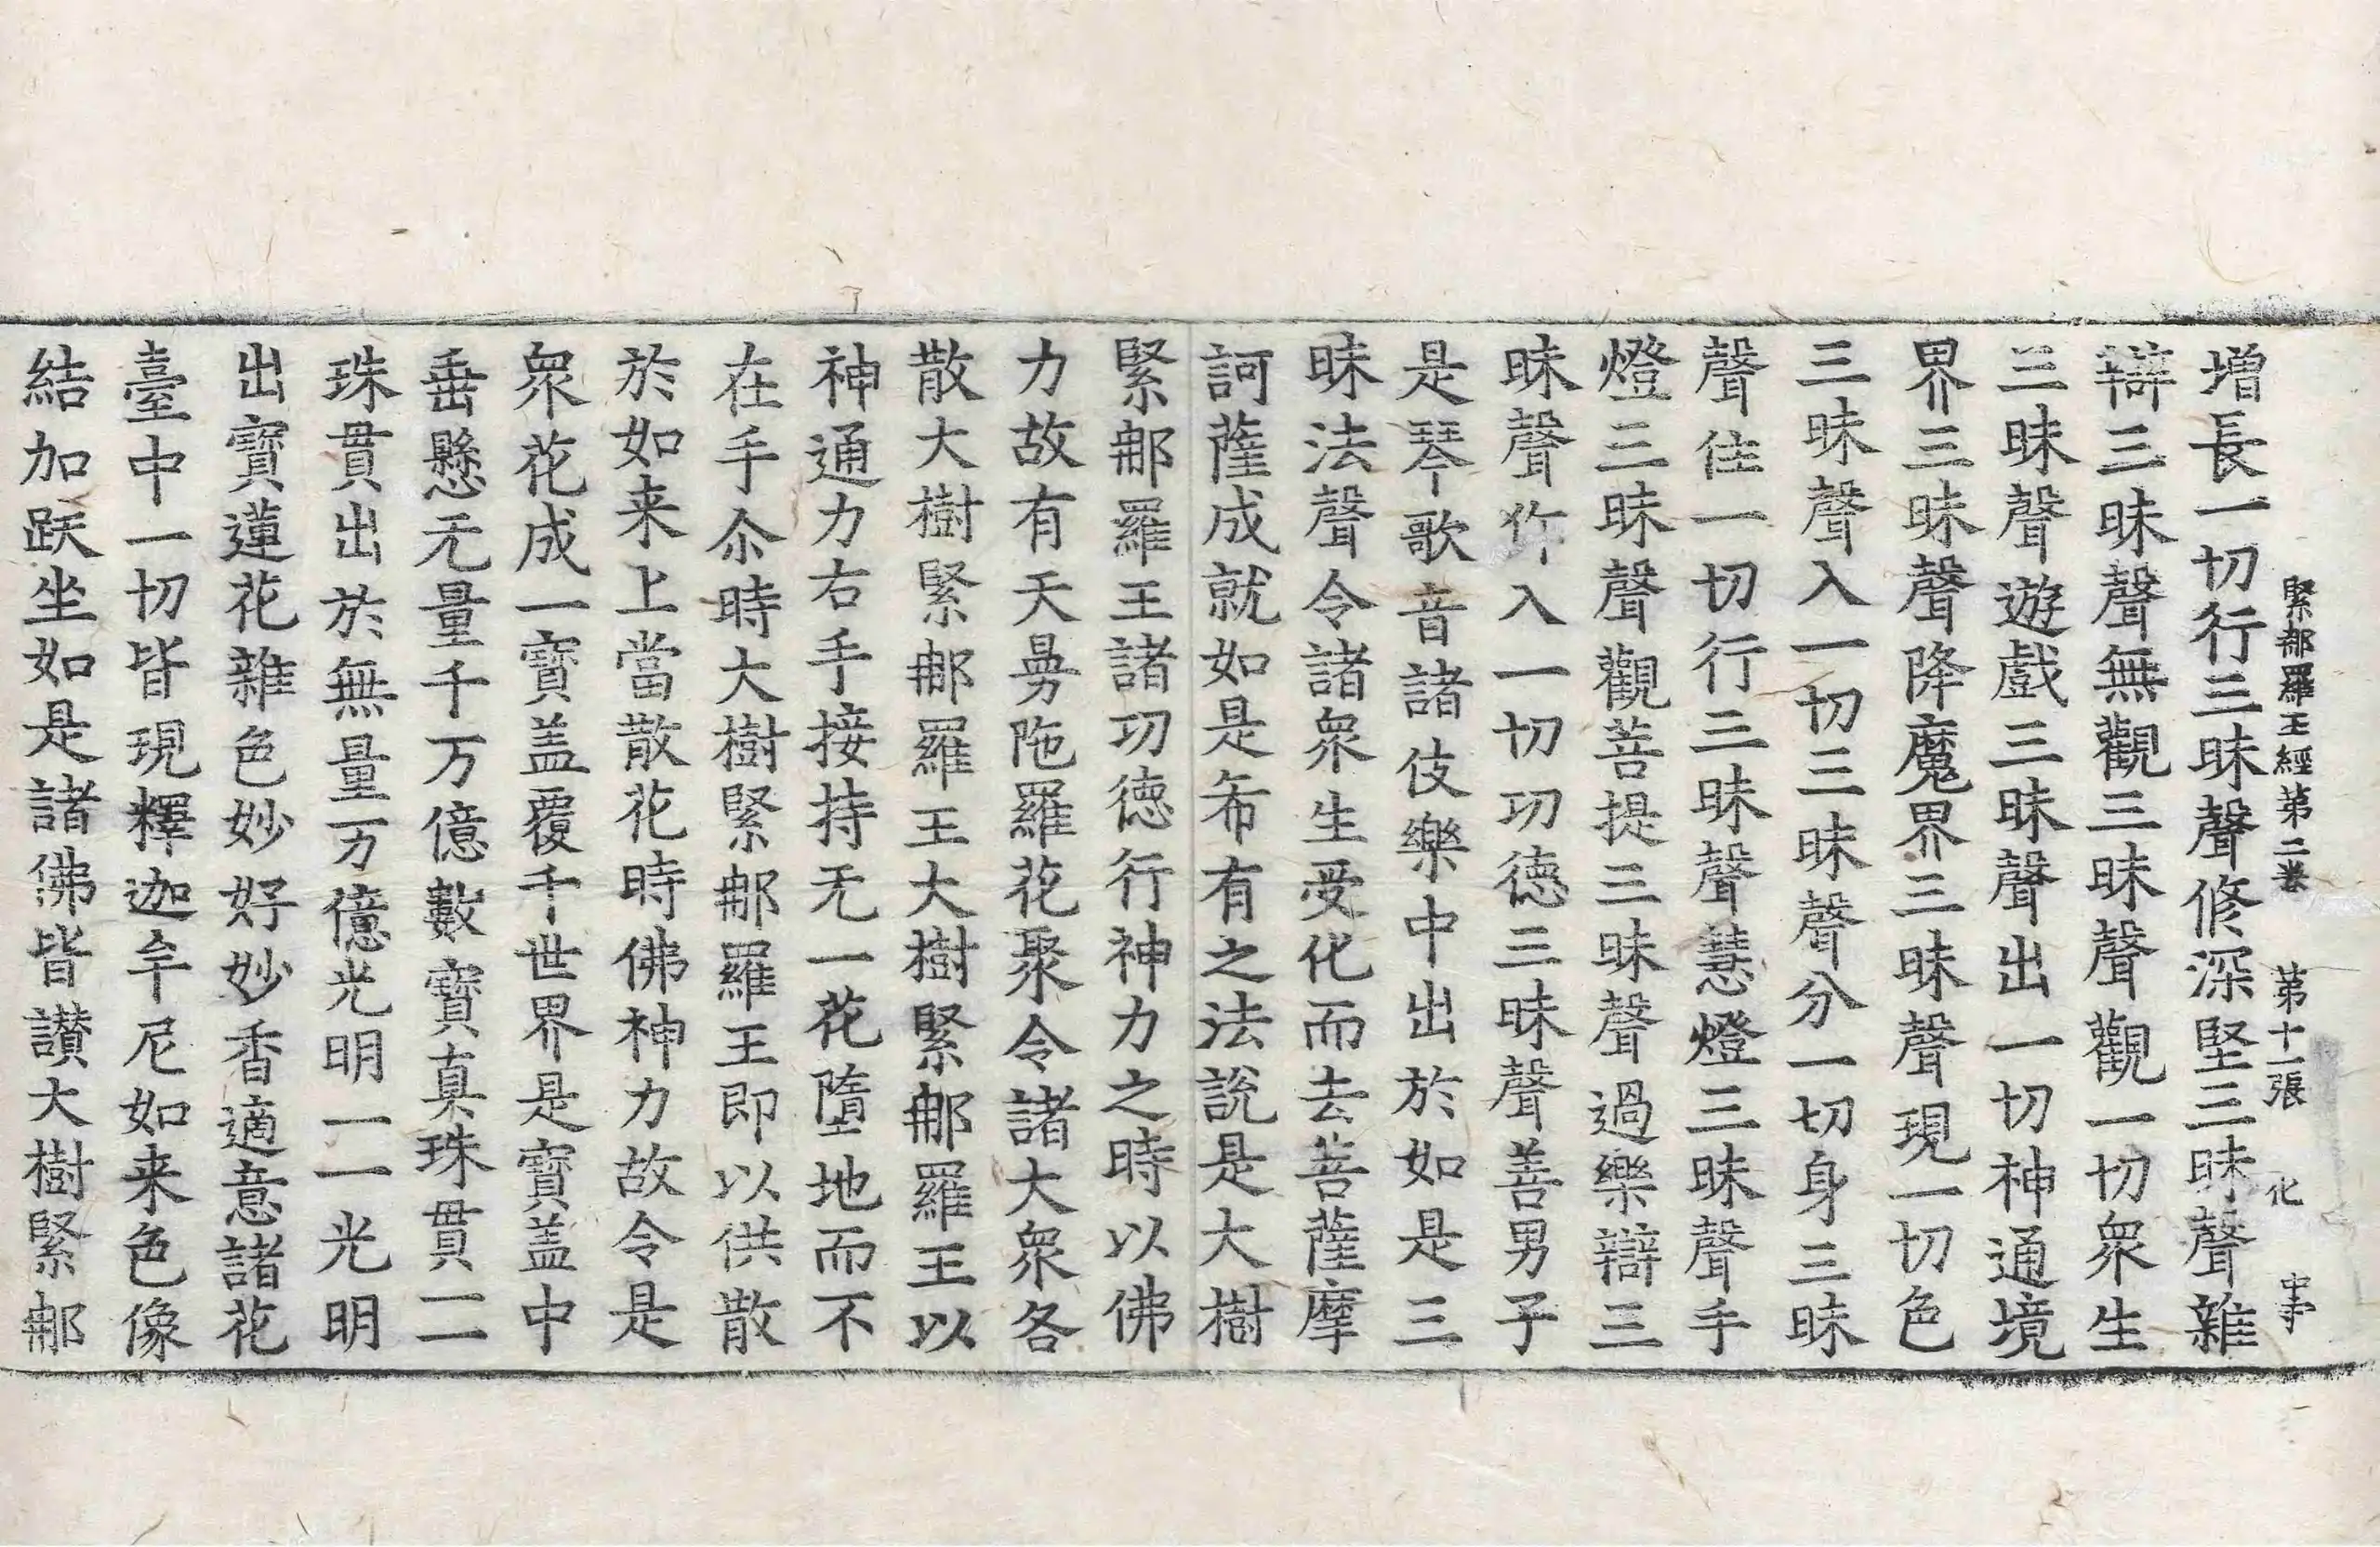 緊那羅王經第二卷 第十一張 化
增長一切行三昧聲修深堅三昧聲雜
辯三昧聲無觀三昧聲觀一切衆生
三昧聲遊戲三昧聲出一切神通境
界三昧聲降魔界三昧聲現一切色
三昧聲入一切三昧聲分一切身三昧
聲住一切行三昧聲慧燈三昧聲手
燈三昧聲觀菩提三昧聲過樂辯三
昧聲作入一切功德三昧聲善男子
是琴歌音諸伎樂中出於如是三
昧法聲令諸衆生受化而去菩薩摩
訶薩成就如是希有之法說是大樹
緊那羅王諸功德行神力之時以佛
力故有天曼陁羅花聚令諸大衆各
散大樹緊那羅王大樹緊那羅王以
神通力右手接持无一花墮地而不
在手尒時大樹緊那羅王即以供散
於如来上當散花時佛神力故令是
衆花成一寶盖覆千世界是寶盖中
垂懸无量千万億數寶真珠貫一一
珠貫出於無量万億光明一一光明
出寶蓮花雜色妙好妙香適意諸花
臺中一切皆現釋迦牟尼如来色像
結加趺坐如是諸佛皆讃大樹緊那